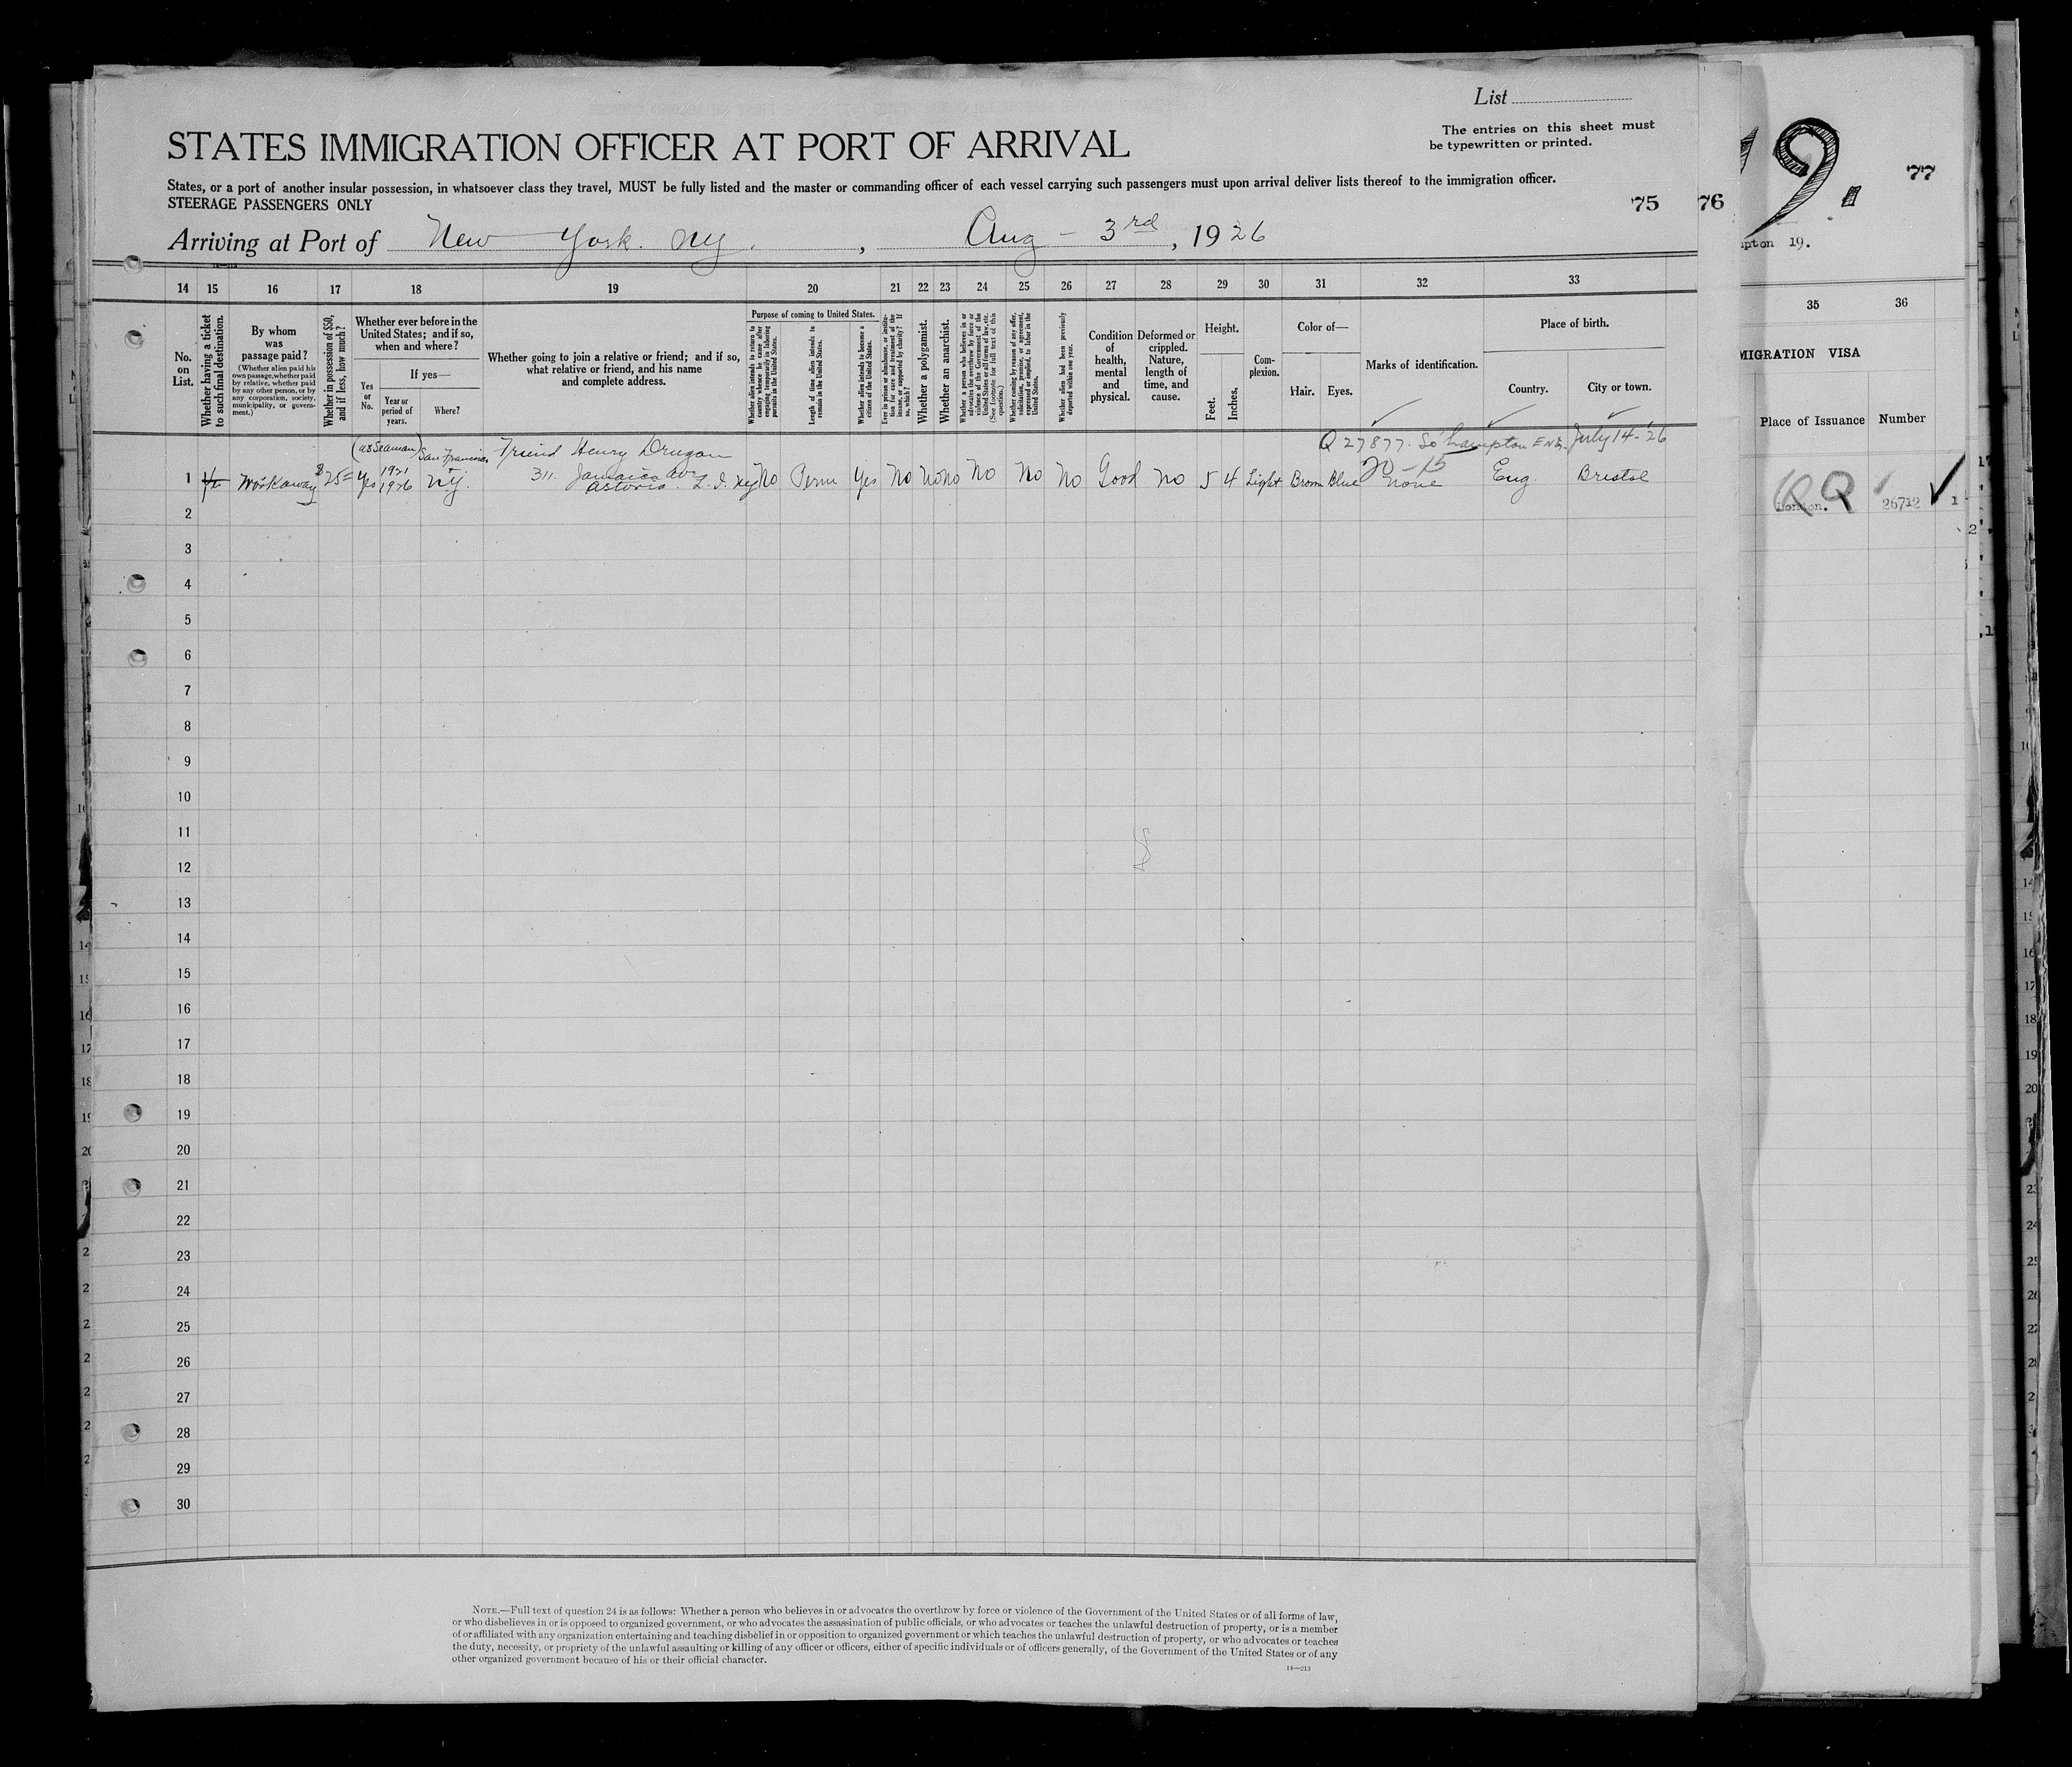 List
The entries on this sheet must
be typewritten or printed.
STATES IMMIGRATION OFFICER AT PORT OF ARRIVAL
States, or a port of another insular possession, in whatsoever class they travel, MUST be fully listed and the master or commanding officer of each vessel carrying such passengers must upon arrival deliver lists thereof to the immigration officer.
STEERAGE PASSENGERS ONLY
75 76 19. 77
Arriving at Port of New York. NY. , Aug - 3rd, 1926
pton 19.
14 15 16 17 18 19 20 21 22 23 24 25 26 27 28 29 30 31 32 33
35 36
No. on List.
Whether having a ticket to such final destination.
By whom was passage paid?
(Whether alien paid his own passage, whether paid by relative, whether paid by any other person, or by any corporation, society, municipality, or government.)
Whether in possession of $50, and if less, how much?
Whether ever before in the United States; and if so, when and where?
If yes—
Yes or No.
Year or period of years.
Where?
Whether going to join a relative or friend; and if so, what relative or friend, and his name and complete address.
Purpose of coming to United States.
Whether alien intends to return to country whence he came after engaging temporarily in laboring pursuits in the United States.
Length of time alien intends to remain in the United States.
Whether alien intends to become a citizen of the United States.
Ever in prison or almshouse, or institution for care and treatment of the insane, or supported by charity? If so, which?
Whether a polygamist.
Whether an anarchist.
Whether a person who believes in or advocates the overthrow by force or violence of the Government of the United States or all forms of law, etc. (See footnote for full text of this question.)
Whether coming by reason of any offer, solicitation, promise, or agreement, expressed or implied, to labor in the United States.
Whether alien had been previously deported within one year.
Condition of health, mental and physical.
Deformed or crippled. Nature, length of time, and cause.
Height.
Feet. Inches.
Complexion.
Color of—
Hair. Eyes.
Marks of identification.
Place of birth.
Country. City or town.
MIGRATION VISA
Place of Issuance Number
(as Seaman) San Francisco Friend Henry Drugan Q 27877. So'hampton ENG. July 14-'26
1 Workaway $25 Yes 1921 1926 N.Y. 311. Jamaica Ave Astoria. L.I. NY No Perm Yes No No No No No No Good No 5 4 Light Brown Blue 20-15 None Eng. Bristol
London. Q 26712 1
2
3
4
5
6
7
8
9
10
11
12
13
14
15
16
17
18
19
20
21
22
23
24
25
26
27
28
29
30
NOTE.—Full text of question 24 is as follows: Whether a person who believes in or advocates the overthrow by force or violence of the Government of the United States or of all forms of law,
or who disbelieves in or is opposed to organized government, or who advocates the assassination of public officials, or who advocates or teaches the unlawful destruction of property, or is a member
of or affiliated with any organization entertaining and teaching disbelief in or opposition to organized government or which teaches the unlawful destruction of property, or who advocates or teaches
the duty, necessity, or propriety of the unlawful assaulting or killing of any officer or officers, either of specific individuals or of officers generally, of the Government of the United States or of any
other organized government because of his or their official character.
14—213